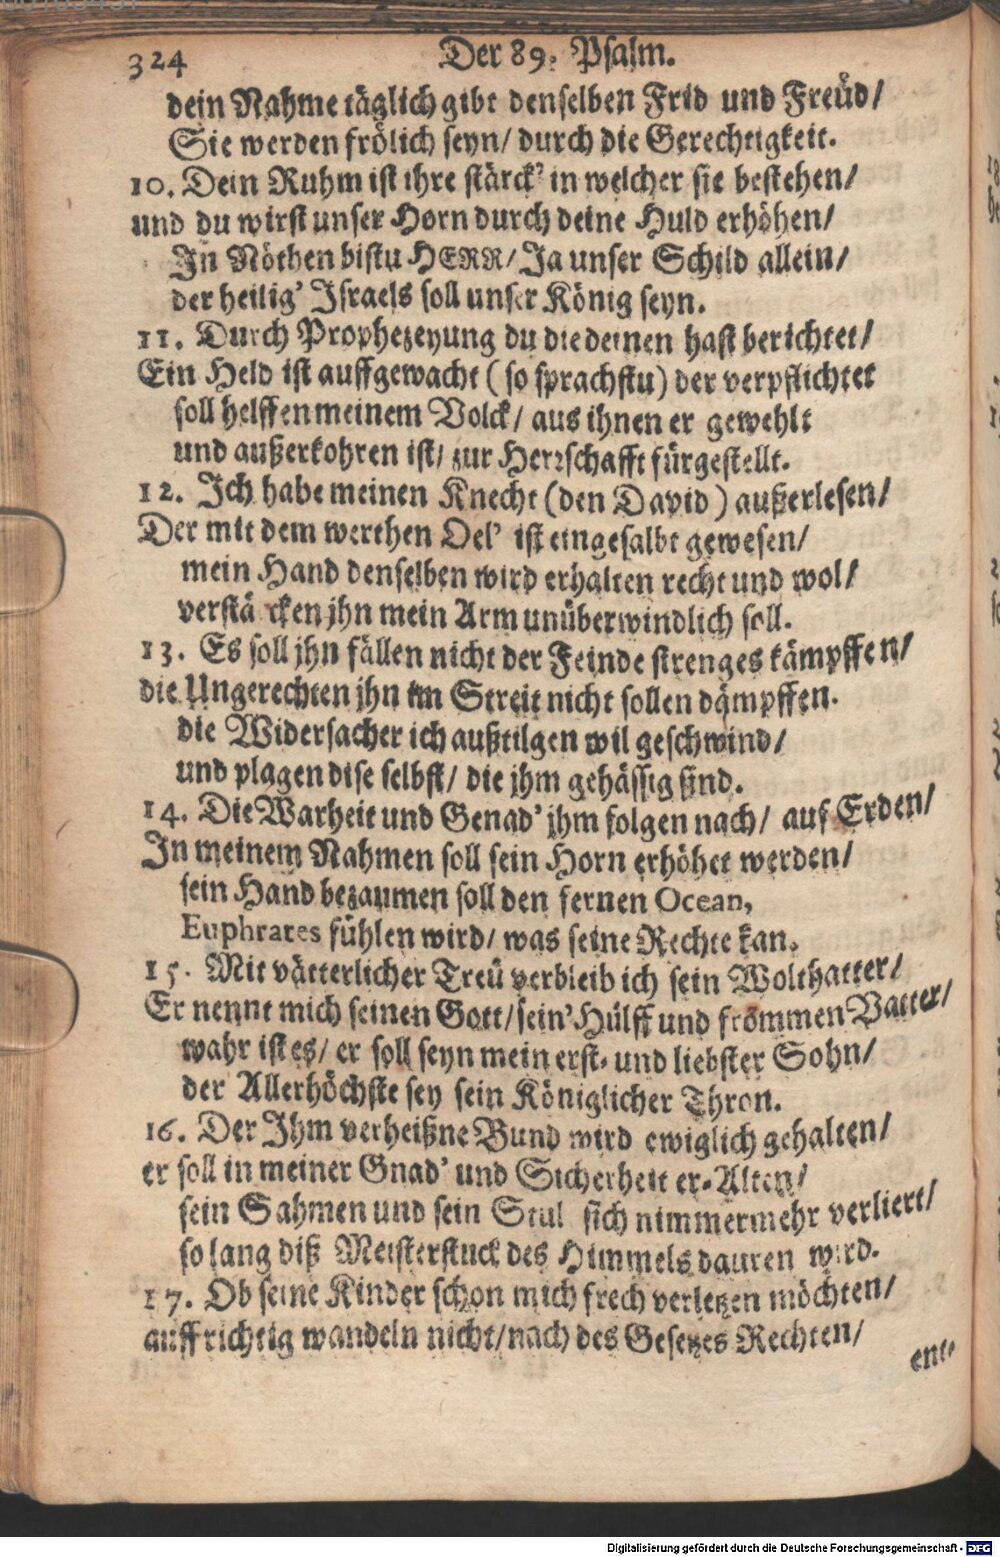 324 Der 89. Psalm.
dein Nahme täglich gibt denselben Frid und Freüd/
Sie werden frölich seyn/ durch die Gerechtigkeit.
10. Dein Ruhm ist ihre stärck' in welcher sie bestehen/
und du wirst unser Horn durch deine Huld erhöhen/
In Nöthen bistu HERR/ Ja unser Schild allein/
der heilig' Israels soll unser König seyn.
11. Durch Prophezeyung du die deinen hast berichtet/
Ein Held ist auffgewacht (so sprachstu) der verpflichtet
soll helffen meinem Volck/ aus ihnen er gewehlt
und außerkohren ist/ zur Herrschafft fürgestellt.
12. Ich habe meinen Knecht (den David) außerlesen/
Der mit dem werthen Oel' ist eingesalbt gewesen/
mein Hand denselben wird erhalten recht und wol/
verstärcken jhn mein Arm unüberwindlich soll.
13. Es soll jhn fällen nicht der Feinde strenges kämpffen/
die Ungerechten jhn im Streit nicht sollen dämpffen.
die Widersacher ich außtilgen wil geschwind/
und plagen dise selbst/ die jhm gehässig sind.
14. Die Warheit und Genad' jhm folgen nach/ auf Erden/
In meinem Nahmen soll sein Horn erhöhet werden/
sein Hand bezaumen soll den fernen Ocean,
Euphrates fühlen wird/ was seine Rechte kan.
15. Mit vätterlicher Treü verbleib ich sein Wolthatter/
Er nennt mich seinen Gott/ sein' Hülff und frommen Vatter/
wahr ist es/ er soll seyn mein erst- und liebster Sohn/
der Allerhöchste sey sein Königlicher Thron.
16. Der Ihm verheißne Bund wird ewiglich gehalten/
er soll in meiner Gnad' und Sicherheit er-Alten/
sein Sahmen und sein Stul sich nimmermehr verliert/
so lang diß Meisterstuck des Himmels dauren wird.
17. Ob seine Kinder schon mich frech verletzen möchten/
auffrichtig wandeln nicht/ nach des Gesetzes Rechten/
ent-
Digitalisierung gefördert durch die Deutsche Forschungsgemeinschaft - DFG